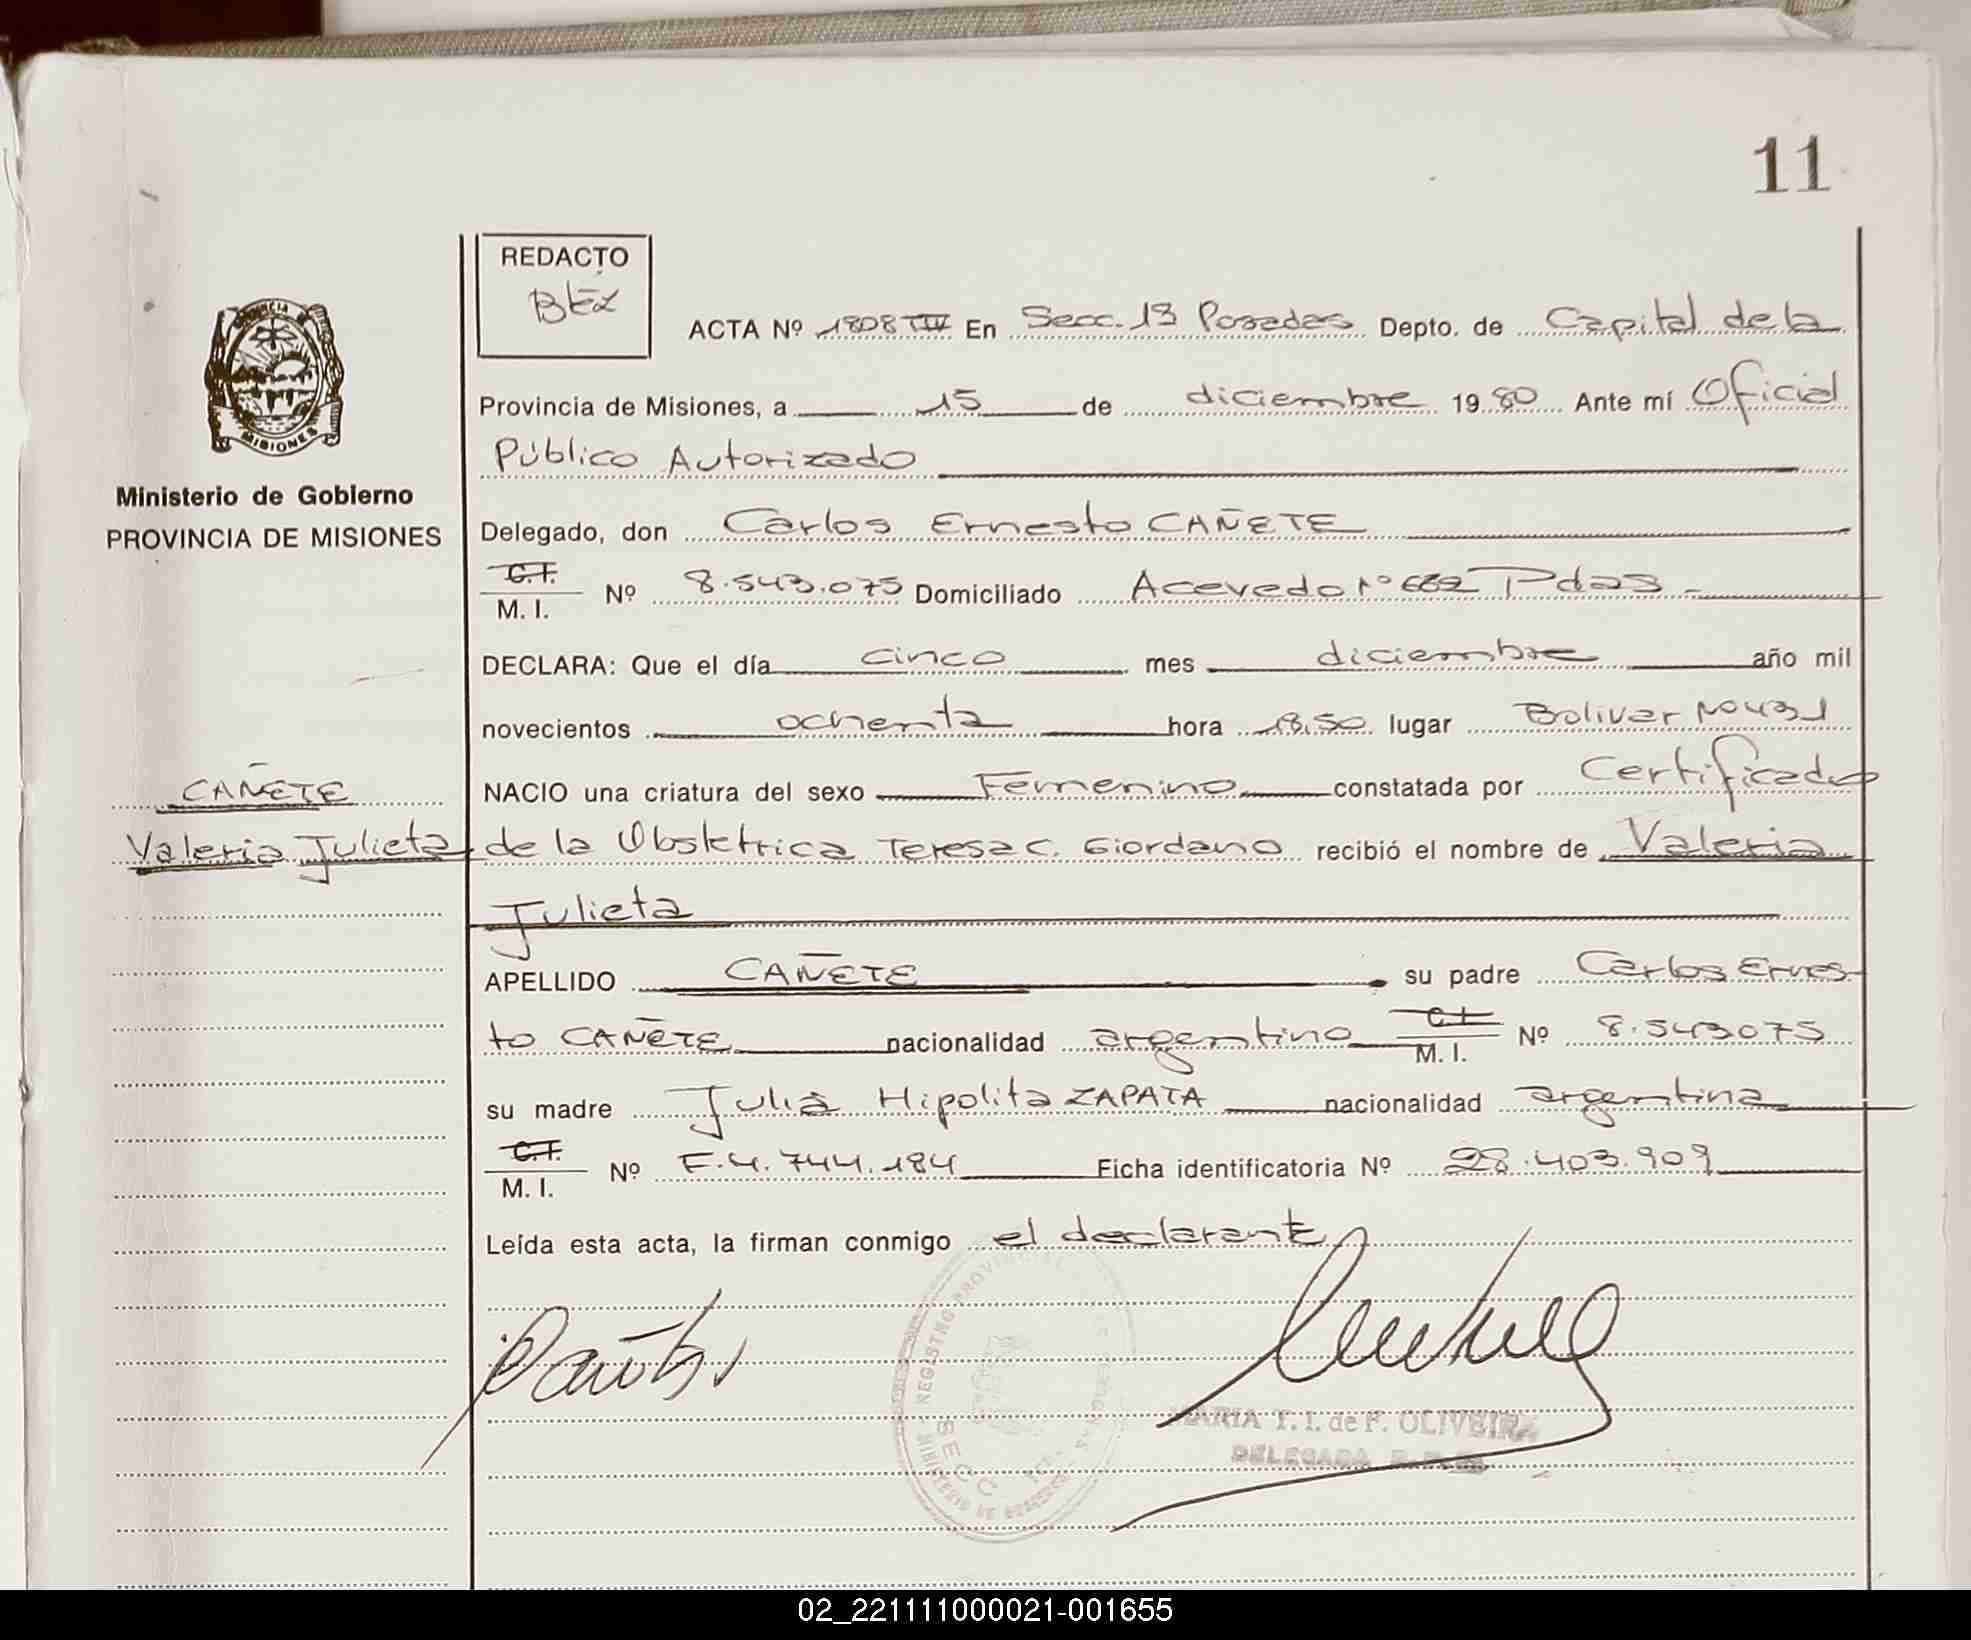 11
REDACTO
BEZ
ACTA Nº 1808 TIV En Secc. 13 Posadas Depto. de Capital de la
Provincia de Misiones, a 15 de diciembre 19 80 Ante mí Oficial
Público Autorizado
Delegado, don Carlos Ernesto CAÑETE
C.I.
M. I. Nº 8.543.075 Domiciliado Acevedo Nº 682 Pdas -
DECLARA: Que el día cinco mes diciembre año mil
novecientos ochenta hora 18,50 lugar Bolivar Nº 431
NACIO una criatura del sexo Femenino constatada por Certificado
de la Obstetrica Teresa C. Giordano recibió el nombre de Valeria
Julieta
APELLIDO CAÑETE su padre Carlos Ernes
to CAÑETE nacionalidad argentino C.I. M. I. Nº 8.543075
su madre Julia Hipolita ZAPATA nacionalidad argentina
C.I.
M. I. Nº F.4.744.184 Ficha identificatoria Nº 28.403.909
Leída esta acta, la firman conmigo el declarante
MARIA T. I. de F. OLIVEIRA
DELEGADA
REGISTRO PROVINCIAL
SECC
MINISTERIO DE GOBIERNO
PROVINCIA DE
MISIONES
Ministerio de Gobierno
PROVINCIA DE MISIONES
CAÑETE
Valeria Julieta
02_221111000021-001655